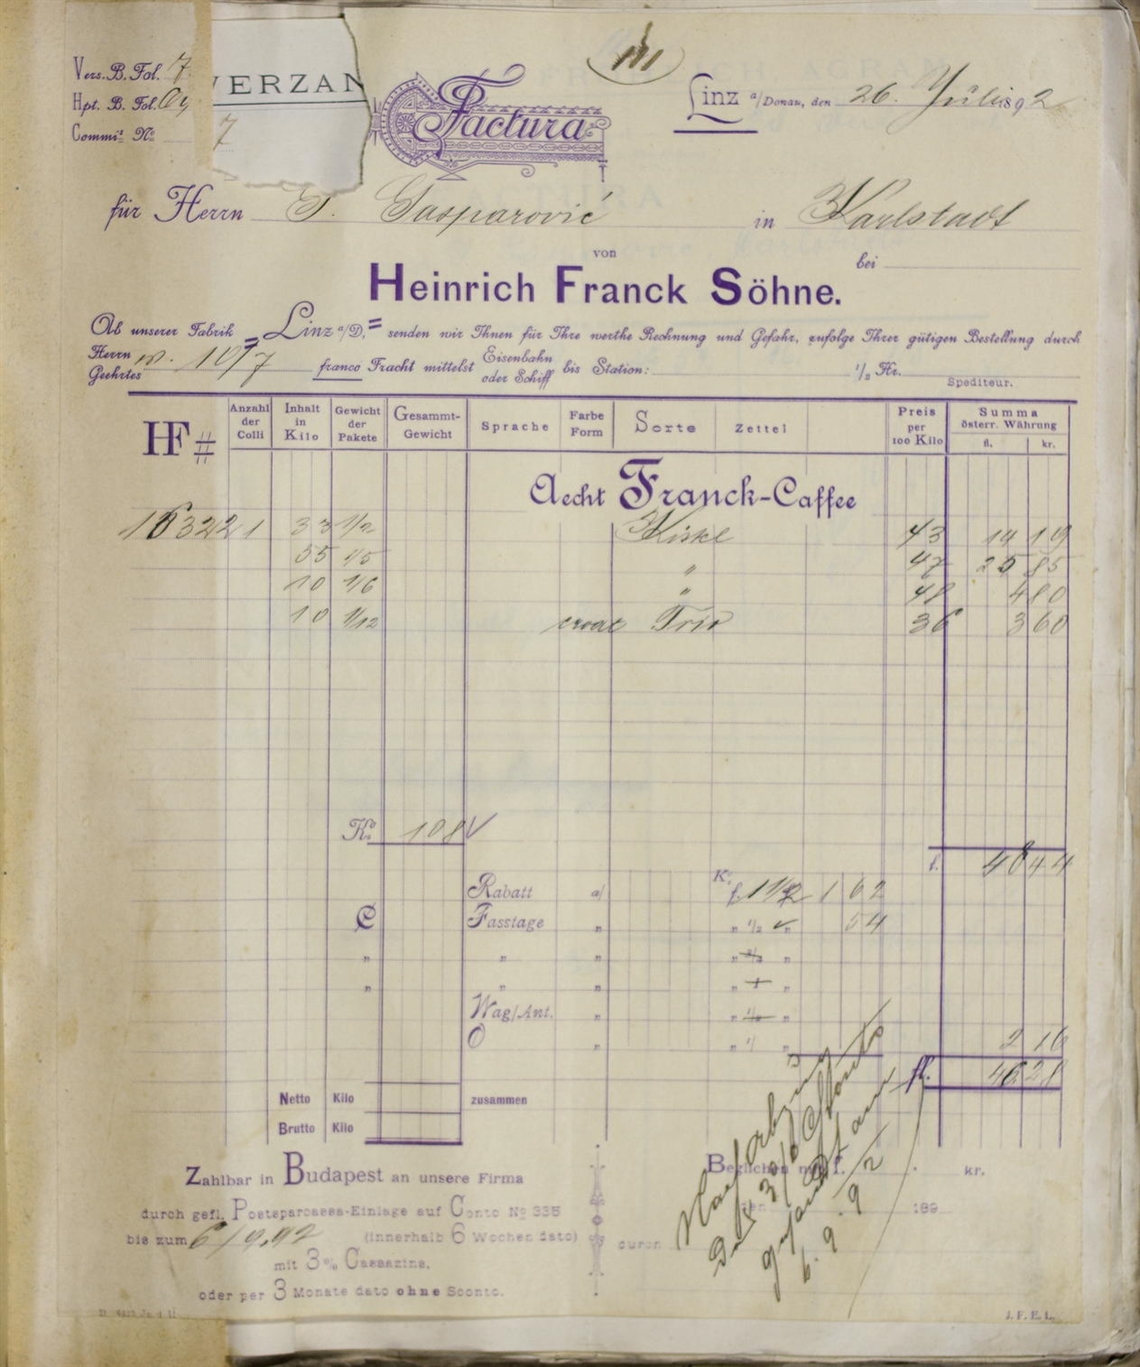 Vers. B. Fol. 7
Hpt. B. Fol.
Commis. No
VERZAN
7
Factura
Linz a/Donau, den 26. Juli 1892
für Herrn Gasparović in Karlstadt
bei
von
Heinrich Franck Söhne.
Ab unserer Fabrik = Linz a/D, = senden wir Ihnen für Ihre werthe Rechnung und Gefahr, zufolge Ihrer gütigen Bestellung durch
Herrn
Geehrtes v. 10/7 franco Fracht mittelst Eisenbahn oder Schiff bis Station: 1/2 Kr.
Spediteur.
HF # Anzahl der Colli Inhalt in Kilo Gewicht der Pakete Gesammt-Gewicht Sprache Farbe Form Sorte Zettel Preis per 100 Kilo Summa österr. Währung fl. kr.
Aecht Franck-Caffee
16322 1 33 1/2 Kiskl 43 14 19
55 1/5 " 47 25 85
10 1/6 " 48 4 80
10 1/12 croat Trio 36 3 60
Ko. 108 √
f. 48 44
Rabatt a/ Ko. f. 1 1/2 1 62
C Fasstage " " 1/2 " 54
" " " " "
" " " " "
Wag/Ant. " " "
O " " 1/ "
2 16
fl. 46 28
Netto Kilo zusammen
Brutto Kilo
Zahlbar in Budapest an unsere Firma
durch gefl. Postsparcassa-Einlage auf Conto No 335
bis zum 6/9.92 (innerhalb 6 Wochen dato)
mit 3% Cassazins,
oder per 3 Monate dato ohne Sconto.
Beglichen mit f. kr.
den 189
durch
6. 9. 92
J. F. E. L.